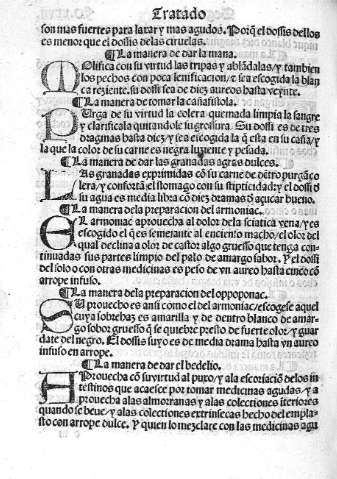 Tratado
son mas fuertes para laxar y mas agudos. Porq̃l dossis dellos
es menor que el dossis delas ciruelas.
¶La manera de dar la mana.
MOlifica con su virtud las tripas y ablãdalas/y tambien
los pechos con poca lenificacion/z sea escogida la blan
ca reziente. su dossi sea de diez aureos hasta veynte.
¶La manera de tomar la cañafistola.
PUrga de su virtud la colera quemada limpia la sangre
y clarificala quitandole su grossura. Su dossi es de tres
dragmas hasta diez/y sea escogida la q̃ esta en su caña/y
la que la color de su carne es negra luziente y pesada.
¶La manera de dar las granadas agras dulces.
LAs granadas exprimidas cõ su carne de dẽtro purgã co
lera/y confortã el stomago con su stipticidad:y el dossi d̃
su agua es media libra cõ diez dramas d̃ açucar bueno.
¶La manera dela preparacion del armoniac.
EL armoniac aprouecha al dolor dela sciatica vena/y es
escogido el q̃ es semejante al encienso macho/el olor del
qual declina a olor de castor algo gruesso que tenga con
tinuadas sus partes limpio del palo de amargo sabor. Y el dossi
del solo o con otras medicinas es peso de vn aureo hasta cinco cõ
arrope infuso.
¶La manera dela preparacion del oppoponac.
SU prouecho es ansi como el del armoniac/escogese aquel
cuya sobrehaz es amarilla y de dentro blanco de amar
go sabor gruesso q̃ se quiebre presto de fuerte olor/y guar
date del negro. El dossis suyo es de media drama hasta vn aureo
infuso en arrope.
¶La manera de dar el bedelio.
AProuecha cõ su virtud al puxo/y ala escoriaciõ delos in
testinos que acaesce por tomar medicinas agudas/y a
prouecha alas almorranas y alas colectiones ĩteriores
quando se beue/y alas colectiones extrinsecas hecho del empla
sto con arrope dulce. Y quien lo mezclare con las medicinas agu